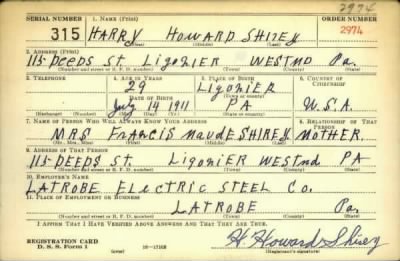 2974
SERIAL NUMBER 1. NAME (Print) ORDER NUMBER
315 HARRY HOWARD SHIREY 2974
(First) (Middle) (Last)
2. ADDRESS (Print)
115 DEEDS ST. LIGONIER WESTMD Pa.
(Number and street or R. F. D. number) (Town) (County) (State)
3. TELEPHONE 4. AGE IN YEARS 5. PLACE OF BIRTH 6. COUNTRY OF CITIZENSHIP
29 LIGONIER
DATE OF BIRTH (Town or county)
July 14 1911 PA U.S.A.
(Exchange) (Number) (Mo.) (Day) (Yr.) (State or country)
7. NAME OF PERSON WHO WILL ALWAYS KNOW YOUR ADDRESS 8. RELATIONSHIP OF THAT PERSON
MRS Francis Maude SHIREY MOTHER.
(Mr., Mrs., Miss) (First) (Middle) (Last)
9. ADDRESS OF THAT PERSON
115 DEEDS St. LIGONIER WESTmd PA
(Number and street or R. F. D. number) (Town) (County) (State)
10. EMPLOYER'S NAME
LATROBE ELECTRIC STEEL Co.
11. PLACE OF EMPLOYMENT OR BUSINESS
LATROBE Pa.
(Number and street or R. F. D. number) (Town) (County) (State)
I AFFIRM THAT I HAVE VERIFIED ABOVE ANSWERS AND THAT THEY ARE TRUE.
REGISTRATION CARD H. Howard Shirey
D. S. S. Form 1 (over) 16—17105 (Registrant's signature)